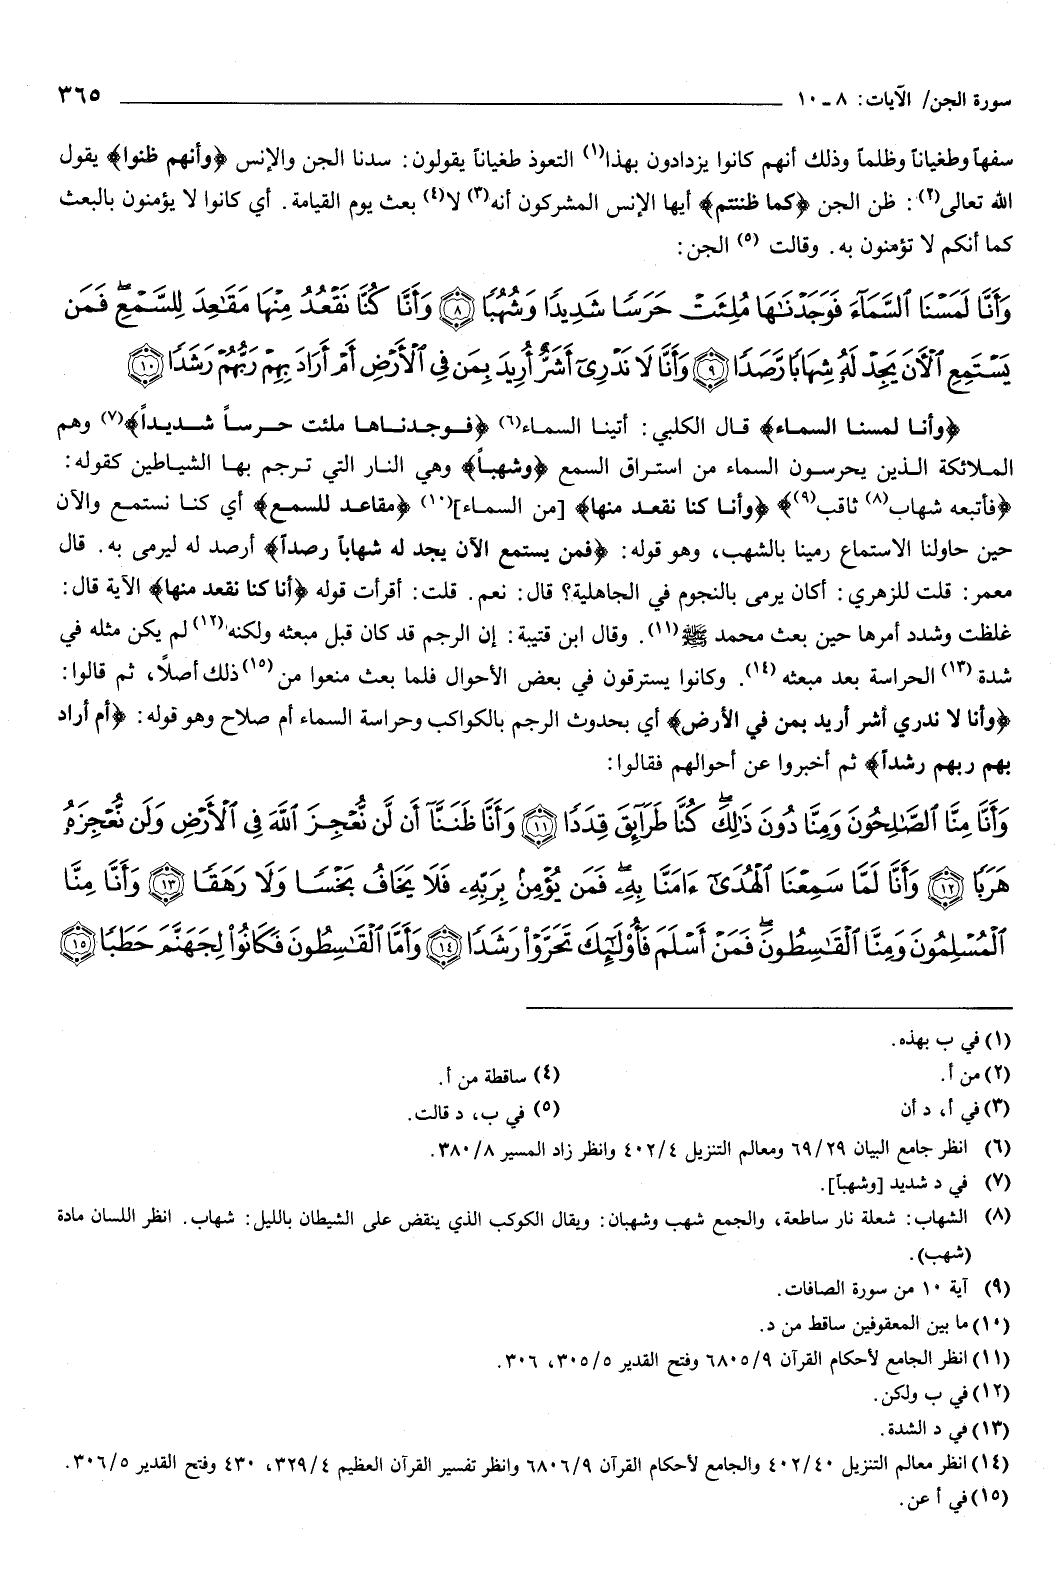 سورة الجن/ الآيات: ٨ ـ ١٠ ٣٦٥
سفهاً وطغياناً وظلماً وذلك أنهم كانوا يزدادون بهذا(١) التعوذ طغياناً يقولون: سدنا الجن والإنس ﴿وأنهم ظنوا﴾ يقول
الله تعالى(٢): ظن الجن ﴿كما ظننتم﴾ أيها الإنس المشركون أنه(٣) لا(٤) بعث يوم القيامة. أي كانوا لا يؤمنون بالبعث
كما أنكم لا تؤمنون به. وقالت (٥) الجن:
وَأَنَّا لَمَسْنَا ٱلسَّمَآءَ فَوَجَدْنَٰهَا مُلِئَتْ حَرَسًا شَدِيدًا وَشُهُبًا ﴿٨﴾ وَأَنَّا كُنَّا نَقْعُدُ مِنْهَا مَقَٰعِدَ لِلسَّمْعِ ۖ فَمَن
يَسْتَمِعِ ٱلْآنَ يَجِدْ لَهُۥ شِهَابًا رَّصَدًا ﴿٩﴾ وَأَنَّا لَا نَدْرِىٓ أَشَرٌّ أُرِيدَ بِمَن فِى ٱلْأَرْضِ أَمْ أَرَادَ بِهِمْ رَبُّهُمْ رَشَدًا ﴿١٠﴾
﴿وأنا لمسنا السماء﴾ قال الكلبي: أتينا السماء(٦) ﴿فوجدناها ملئت حرساً شديداً﴾(٧) وهم
الملائكة الذين يحرسون السماء من استراق السمع ﴿وشهباً﴾ وهي النار التي ترجم بها الشياطين كقوله:
﴿فأتبعه شهاب(٨) ثاقب(٩)﴾ ﴿وأنا كنا نقعد منها﴾ [من السماء](١٠) ﴿مقاعد للسمع﴾ أي كنا نستمع والآن
حين حاولنا الاستماع رمينا بالشهب، وهو قوله: ﴿فمن يستمع الآن يجد له شهاباً رصداً﴾ أرصد له ليرمى به. قال
معمر: قلت للزهري: أكان يرمى بالنجوم في الجاهلية؟ قال: نعم. قلت: أقرأت قوله ﴿أنا كنا نقعد منها﴾ الآية قال:
غلظت وشدد أمرها حين بعث محمد ﷺ(١١). وقال ابن قتيبة: إن الرجم قد كان قبل مبعثه ولكنه(١٢) لم يكن مثله في
شدة (١٣) الحراسة بعد مبعثه (١٤). وكانوا يسترقون في بعض الأحوال فلما بعث منعوا من (١٥) ذلك أصلاً، ثم قالوا:
﴿وأنا لا ندري أشر أريد بمن في الأرض﴾ أي بحدوث الرجم بالكواكب وحراسة السماء أم صلاح وهو قوله: ﴿أم أراد
بهم ربهم رشداً﴾ ثم أخبروا عن أحوالهم فقالوا:
وَأَنَّا مِنَّا ٱلصَّٰلِحُونَ وَمِنَّا دُونَ ذَٰلِكَ ۖ كُنَّا طَرَآئِقَ قِدَدًا ﴿١١﴾ وَأَنَّا ظَنَنَّآ أَن لَّن نُّعْجِزَ ٱللَّهَ فِى ٱلْأَرْضِ وَلَن نُّعْجِزَهُۥ
هَرَبًا ﴿١٢﴾ وَأَنَّا لَمَّا سَمِعْنَا ٱلْهُدَىٰٓ ءَامَنَّا بِهِۦ ۖ فَمَن يُؤْمِنۢ بِرَبِّهِۦ فَلَا يَخَافُ بَخْسًا وَلَا رَهَقًا ﴿١٣﴾ وَأَنَّا مِنَّا
ٱلْمُسْلِمُونَ وَمِنَّا ٱلْقَٰسِطُونَ ۖ فَمَنْ أَسْلَمَ فَأُو۟لَٰٓئِكَ تَحَرَّوْا۟ رَشَدًا ﴿١٤﴾ وَأَمَّا ٱلْقَٰسِطُونَ فَكَانُوا۟ لِجَهَنَّمَ حَطَبًا ﴿١٥﴾
(١) في ب بهذه.
(٢) من أ. (٤) ساقطة من أ.
(٣) في أ، د أن (٥) في ب، د قالت.
(٦) انظر جامع البيان ٦٩/٢٩ ومعالم التنزيل ٤٠٢/٤ وانظر زاد المسير ٣٨٠/٨.
(٧) في د شديد [وشهباً].
(٨) الشهاب: شعلة نار ساطعة، والجمع شهب وشهبان: ويقال الكوكب الذي ينقض على الشيطان بالليل: شهاب. انظر اللسان مادة
(شهب).
(٩) آية ١٠ من سورة الصافات.
(١٠) ما بين المعقوفين ساقط من د.
(١١) انظر الجامع لأحكام القرآن ٦٨٠٥/٩ وفتح القدير ٣٠٥/٥، ٣٠٦.
(١٢) في ب ولكن.
(١٣) في د الشدة.
(١٤) انظر معالم التنزيل ٤٠٢/٤٠ والجامع لأحكام القرآن ٦٨٠٦/٩ وانظر تفسير القرآن العظيم ٣٢٩/٤، ٤٣٠ وفتح القدير ٣٠٦/٥.
(١٥) في أ عن.